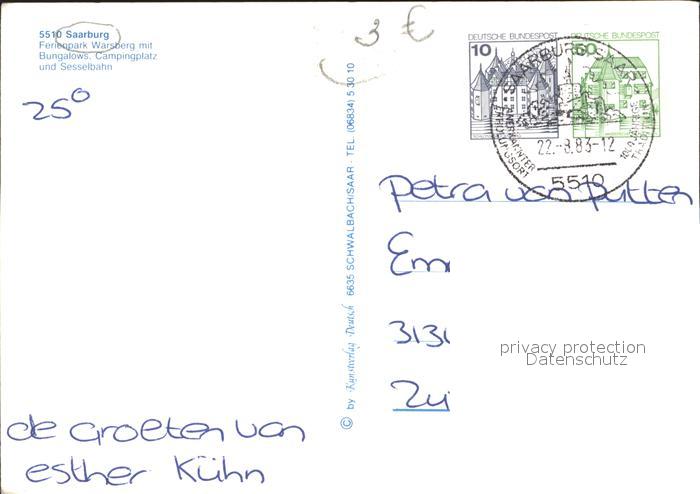 5510 Saarburg
Ferienpark Warsberg mit
Bungalows, Campingplatz
und Sesselbahn
25°
3 €
DEUTSCHE BUNDESPOST
10
DEUTSCHE BUNDESPOST
50
SAARBURG, SAAR
ANERKANNTER
ERHOLUNGSORT
22.-8.83-12
5510
© by Kunstverlag Deutsch 6635 SCHWALBACH/SAAR · TEL. (06834) 5 30 10
Petra van Putten
Em
3131
Zij
privacy protection
Datenschutz
de Groeten van
esther Kühn